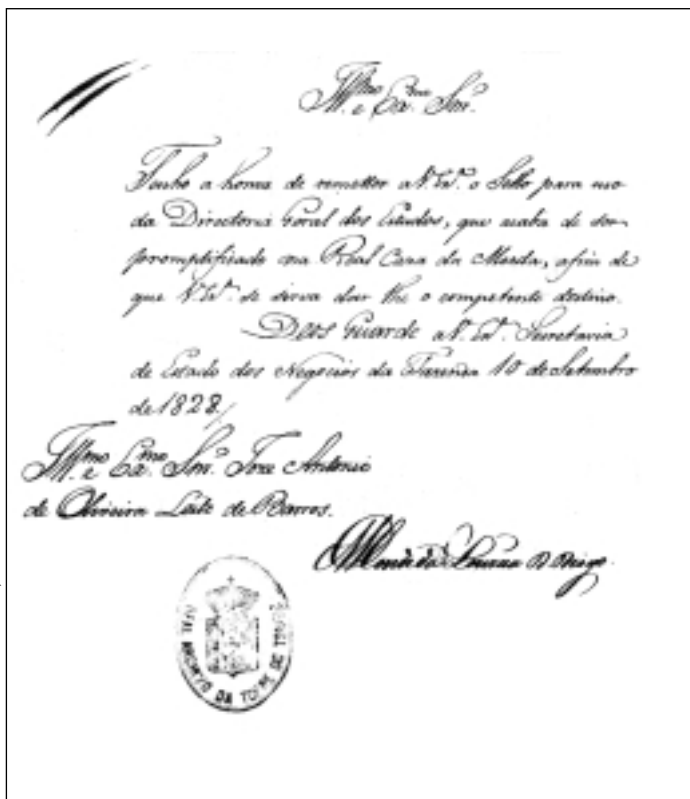 Ill.mo e Ex.mo Snr.
Tenho a honra de remetter a V. Ex.ª o Sello para uso
da Directoria Geral dos Estudos, que acaba de ser
promptificado na Real Caza da Moeda, afim de
que V. Ex.ª se sirva dar lhe o competente destino.
Deos Guarde a V. Ex.ª Secretaria
de Estado dos Negocios da Fazenda 10 de Setembro
de 1828
Ill.mo e Ex.mo Snr. Joze Antonio
de Oliveira Leite de Barros.
Conde da Louzaã D. Diogo.
REAL ARCHIVO DA TORRE DO TOMBO